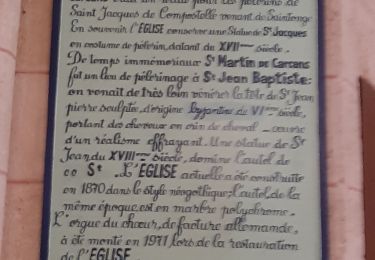 Saint Jacques de Compostelle venant de Saintonge
En souvenir l'EGLISE conserve une Statue de St Jacques
en costume de pèlerin, datant du XVIIème Siècle.
De temps immémoriaux St MARTIN DE CARCANS
fut un lieu de pèlerinage à St JEAN BAPTISTE:
on venait de très loin vénérer la tête de St Jean
pierre sculptée, d'origine byzantine du VIème siècle,
portant des cheveux en crin de cheval _ œuvre
d'un réalisme effrayant. Une statue de St
Jean du XVIIIème Siècle, domine l'autel de
ce St. L'EGLISE actuelle a été construite
en 1870 dans le style néogothique; l'autel, de la
même époque, est en marbre polychrome.
L'orgue du chœur, de facture allemande,
a été monté en 1971, lors de la restauration
de l'EGLISE